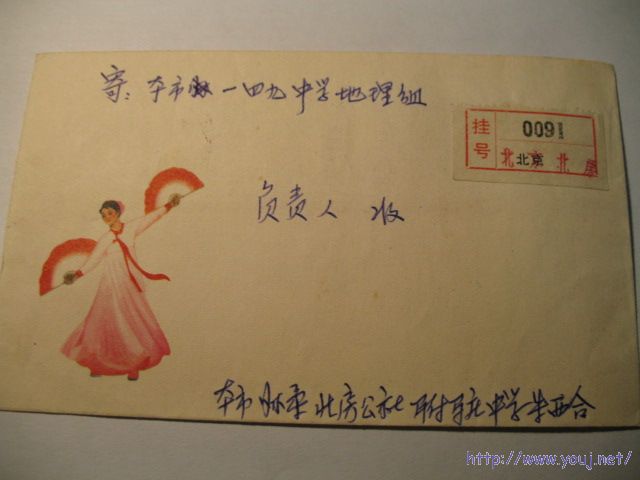 寄: 本市 一四九中学地理组
挂号
009
北京 北房
负责人 收
本市怀柔北房公社 中学
http://www.youj.net/